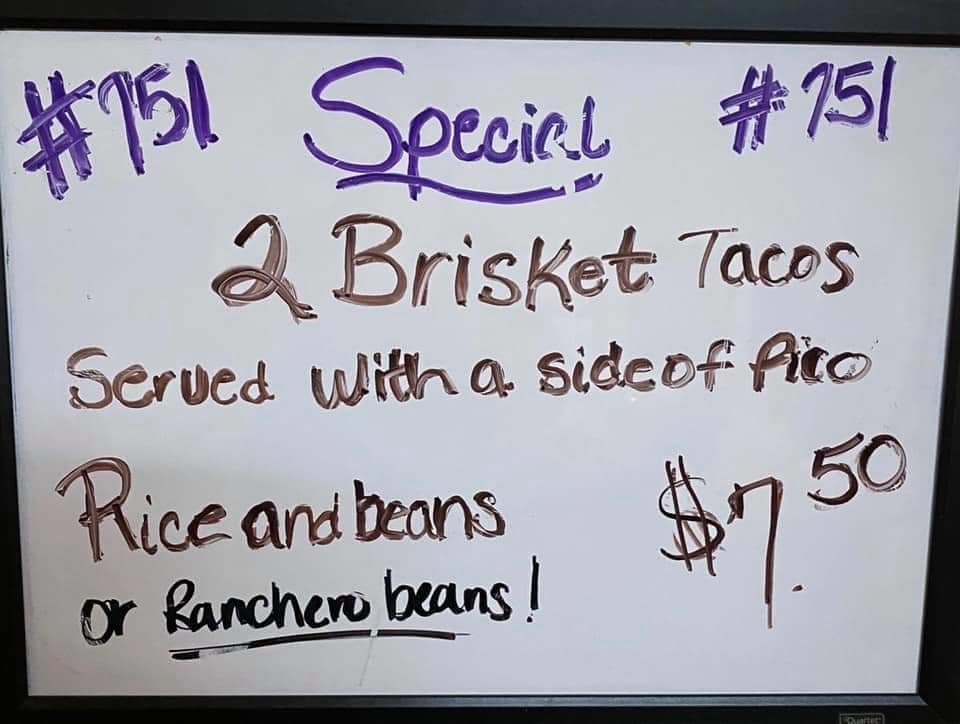 #751 Special #751
2 Brisket Tacos
Served with a side of Pico
Rice and beans $7.50
or Ranchero beans!
Quartet